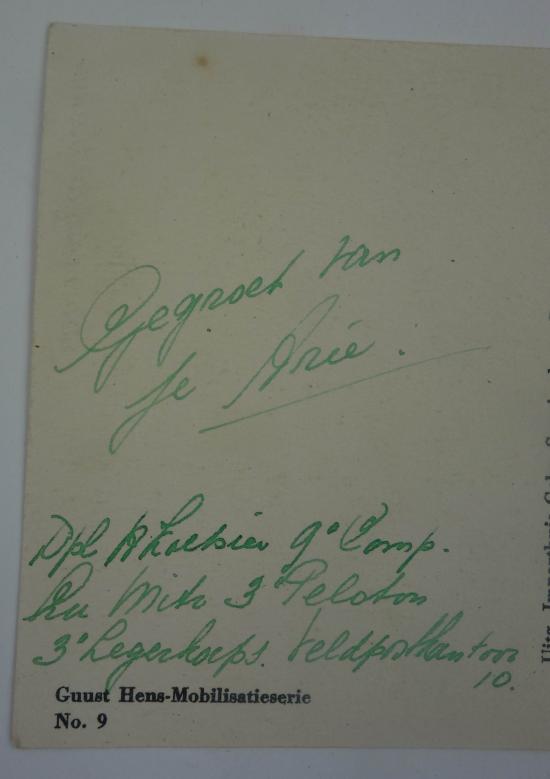 Gegroet van
je Arie.
Dpl A 9e Comp.
Mitr 3e Peloton
3e Legerkorps. Veldpostkantoor
10.
Guust Hens-Mobilisatieserie
No. 9